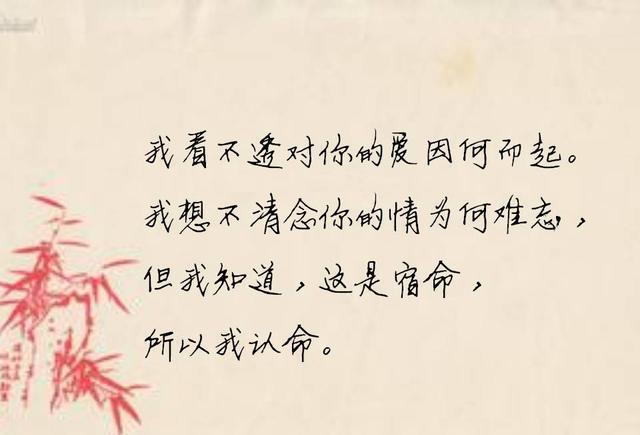 我看不透对你的爱因何而起。
我想不清念你的情为何难忘，
但我知道，这是宿命，
所以我认命。